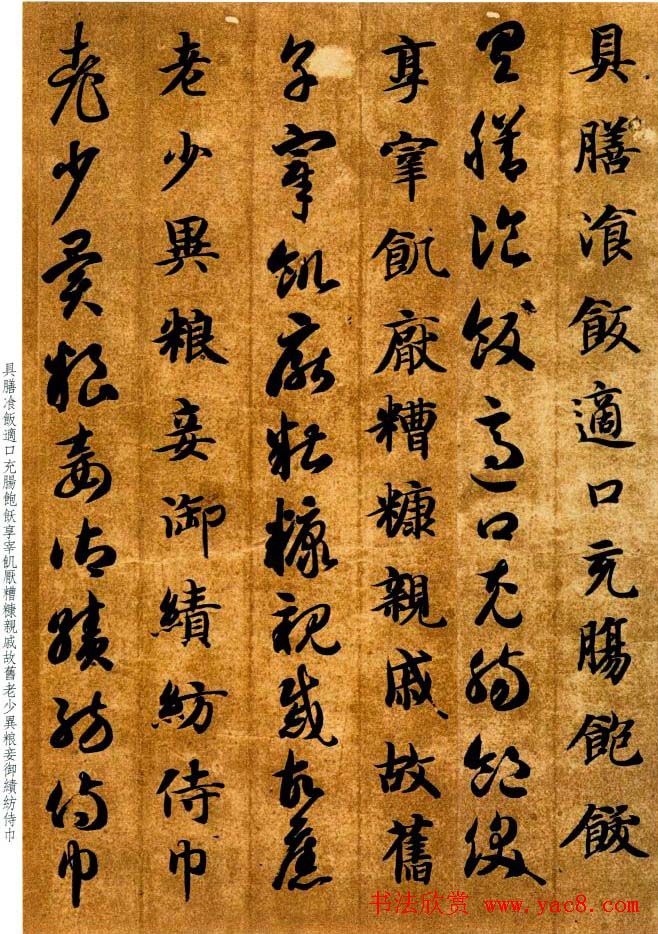 具膳飡飯適口充腸飽飫
具膳飡飯適口充腸飽飫
享宰飢厭糟糠親戚故舊
享宰飢厭糟糠親戚故舊
老少異粮妾御績紡侍巾
老少異粮妾御績紡侍巾
具膳飡飯適口充腸飽飫享宰飢厭糟糠親戚故舊老少異粮妾御績紡侍巾
书法欣赏 www.yac8.com